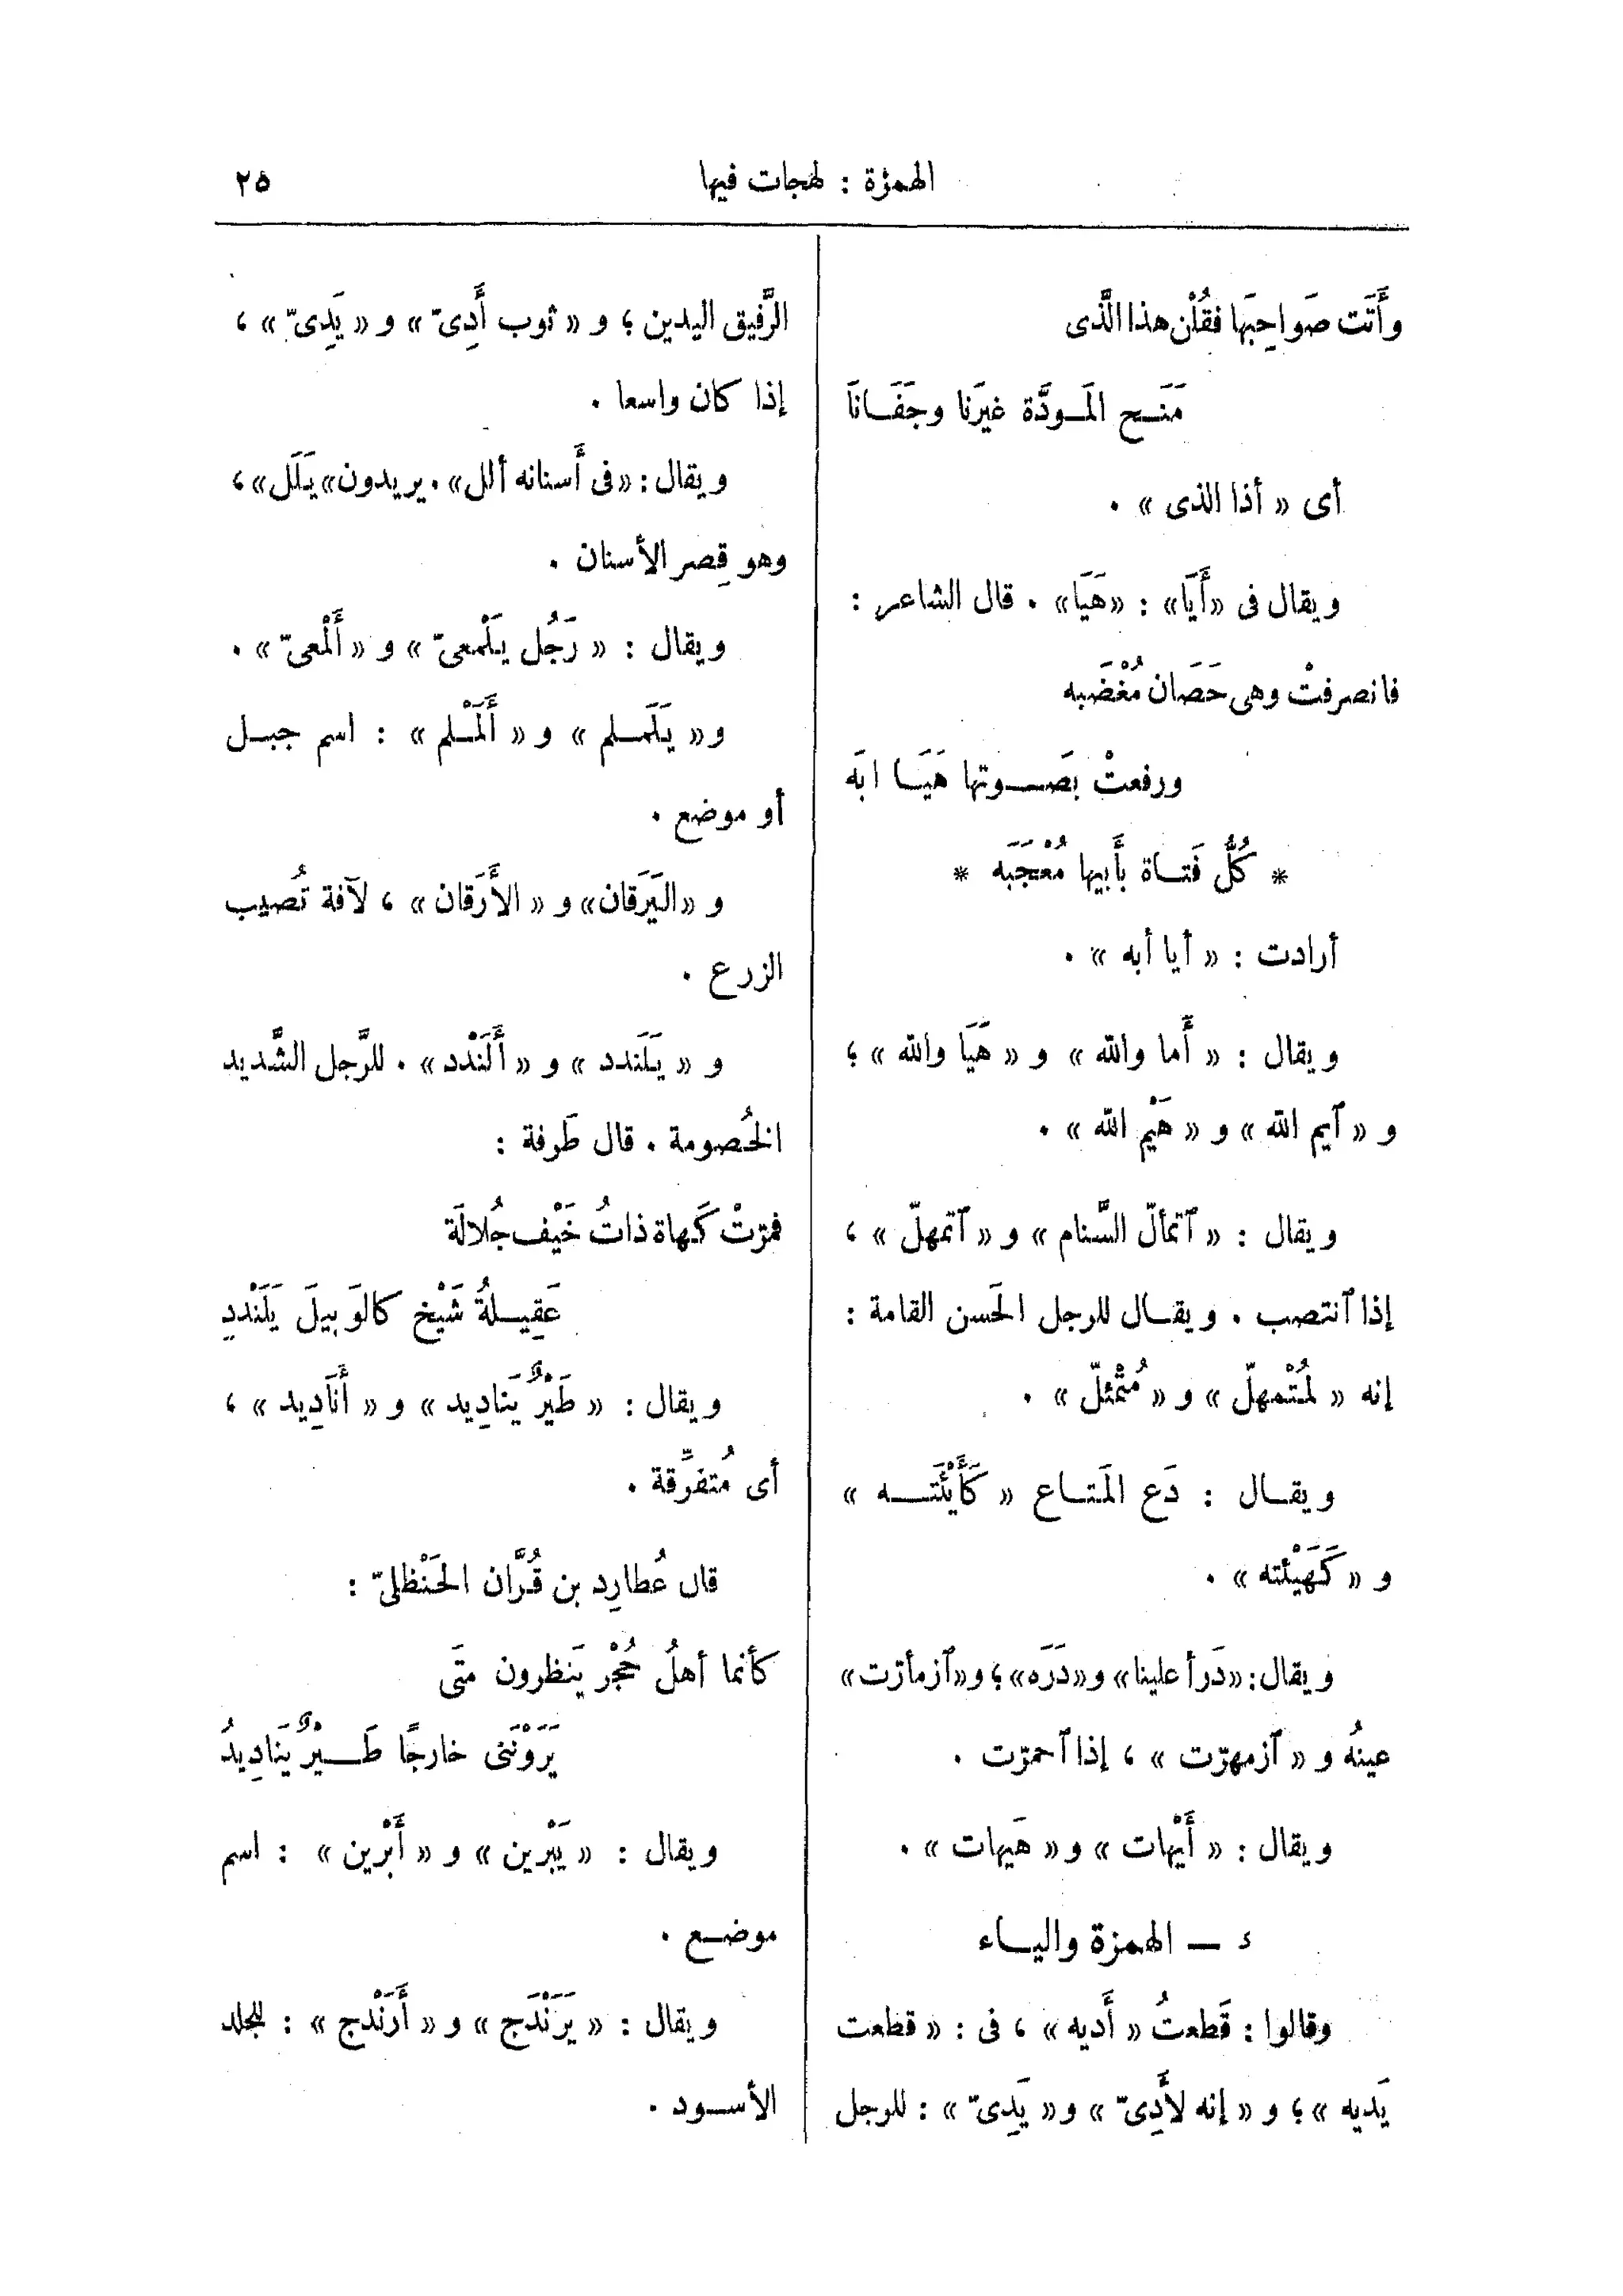 الهمزة : لهجات فيها
٢٥
وأَتَت صَواحِبَها فقُلْن هذا الَّذى
مَنَح المَودَّة غيَرنا وجَفَانَا
أى « أذا الذى » .
ويقال فى «أَيَا» : «هَيَا» . قال الشاعر :
فانصرفتْ وهى حَصَان مُغْضَبه
ورفعتْ بصَوتها هَيَا ابَه
* كُلُّ فَتاة بأَبيها مُعْجَبَه *
أرادت : « أيا أبه » .
ويقال : « أَما والله » و « هَيَا والله » ؛
و « آيم الله » و « هَيْم الله » .
ويقال : « ٱتمألّ السَّنام » و « ٱتمهلّ » ،
إذا ٱنتصب . ويقال للرجل الحَسن القامة :
إنه « لمُتْمهلّ » و « مُتْمئلّ » .
ويقال : دَع المَتاع « كَأَيْئَته »
و « كَهَيْئته » .
ويقال : «دَرأ علينا» و«دَرَه» ؛ و«ٱزمأرّت»
عينهُ و « ٱزمهرّت » ، إذا ٱحمرّت .
ويقال : « أَيْهات » و« هَيهات » .
ء — الهمزة والياء
وقالوا : قَطعتُ « أَديه » ، فى : « قطعت
يَديه » ؛ و « إنه لأَدِىّ » و« يَدِىّ » : للرجل
الرَّفيق اليدين ؛ و « ثوب أَدِىّ » و « يَدِىّ » ،
إذا كان واسعا .
ويقال : «فى أَسنانه ألل» . يريدون «يَلَل» ،
وهو قِصر الأسنان .
ويقال : « رَجُل يَلْمعىّ » و « أَلْمعىّ » .
و« يَلَملم » و « أَلَمْلم » : اسم جبل
أو موضع .
و «اليَرَقان» و « الأَرَقان » ، لآفة تُصيب
الزرع .
و « يَلَندد » و « أَلَنْدد » . للرَّجل الشَّديد
الخُصومة . قال طَرفة :
فمرّتْ كَهاة ذاتُ خَيْف جُلالَة
عَقِيلةُ شَيْخ كالوَبيلَ يَلَنْددِ
ويقال : « طَيْرٌ يَنادِيد » و « أَنَادِيد » ،
أى مُتفرِّقة .
قال عُطارِد بن قُرَّان الحَنْظلىّ :
كأنما أهلُ حُجْر يَنظرون متَى
يَرَوْنَنى خارجًا طَيْرٌ يَنَادِيدُ
ويقال : « يَبْرين » و « أَبْرين » : اسم
موضع .
ويقال : « يَرَنْدَج » و « أَرَنْدج » : للجلد
الأسود .